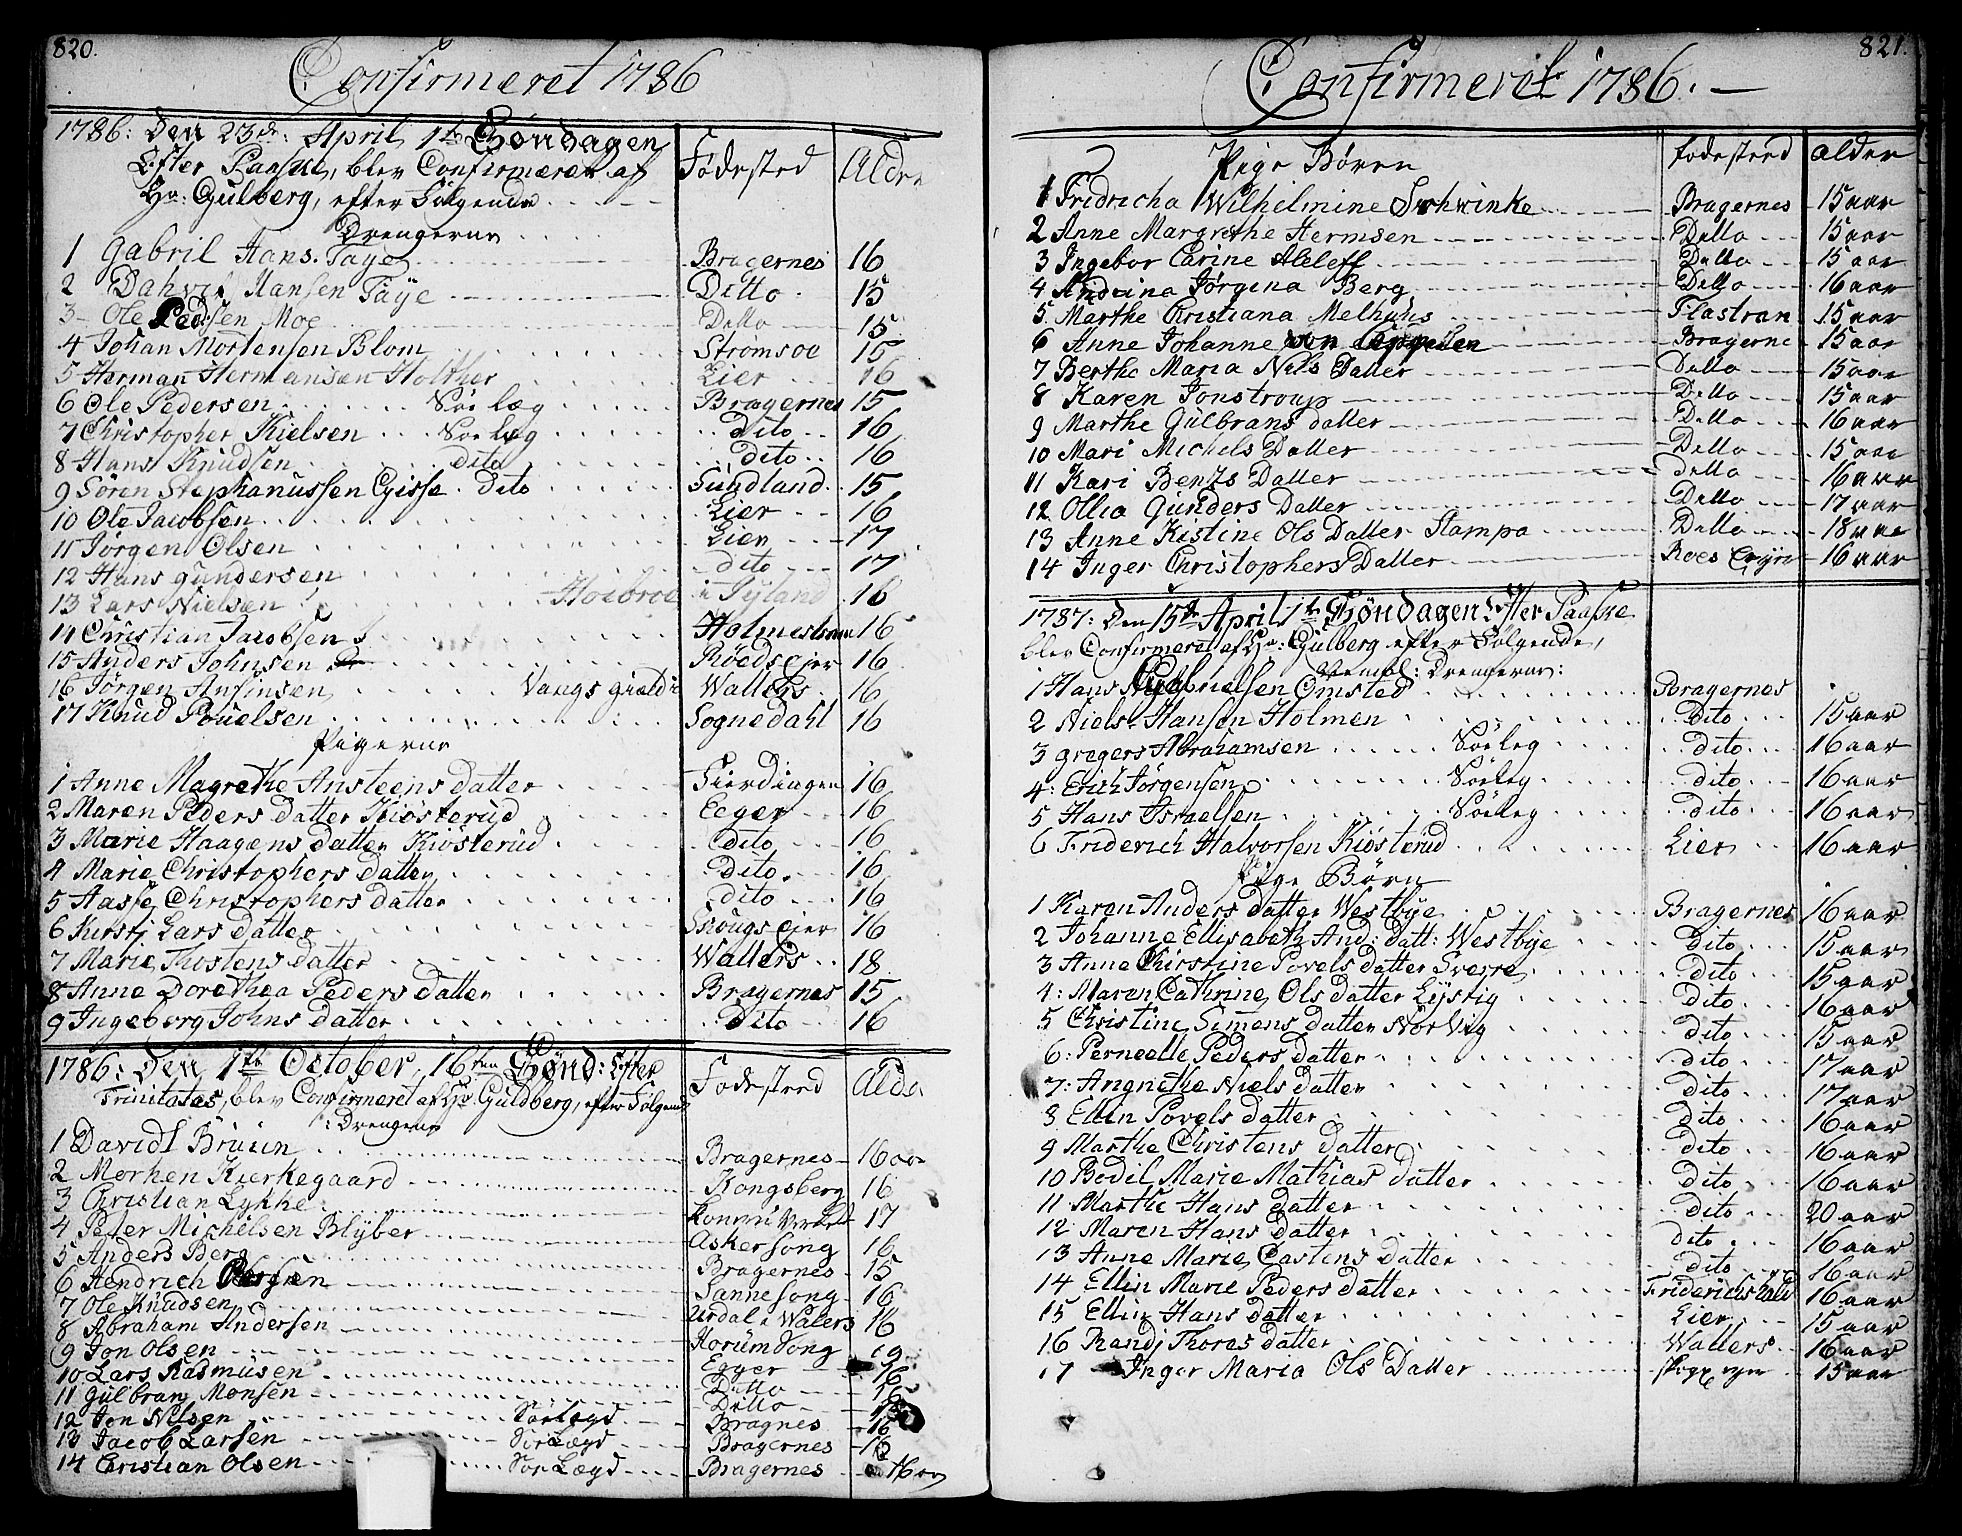 820.
Confirmeret 1786
1786: Den 23de: April, 1te Söndagen Fødested Alder
Efter Paaske, blev Confirmeret af
Hr: Gulberg, efter Følgende
Drengerne
1 Gabril Hans. Faye Bragernes 16
2 Dahvid Hansen Faÿe Ditto 15
3 Ole Pedersen Moe Ditto 15
4 Johan Mortensen Blom Strømsoe 15
5 Herman Hermansen Holther Lier 16
6 Ole Pedersen Söe læg Bragernes 15
7 Christopher Kielsen Söe læg Dito 16
8 Hans Knudsen dito dito 16
9 Sören Stephanussen Gisse dito Sundland 15
10 Ole Jacobsen Lier 16
11 Jørgen Olsen Lier 17
12 Hans gundersen dito 17
13 Lars Nielsen Hoebroe i Jÿland 16
14 Christian Jacobsen Holmestrand 16
15 Anders Johnsen Röedsejer 16
16 Jørgen Ansinsen Vangs gield i Wallers 16
17 Knud Pouelsen Sognedahl 16
Pigerne
1 Anne Magrethe Ansteens datter Fierdingen 16
2 Maren Peders datter Kiösterud Eeger 16
3 Marie Haagens datter Kiösterud dito 16
4 Marie Christophers datter dito 16
5 Aasse Christophers datter dito 16
6 Kirstj Lars datter Skougs Ejer 16
7 Marie Thostens datter Wallers 18
8 Anne Dorethea Peders datter Bragernes 15
9 Ingeborg Johns datter Dito 16
1786: Den 1te October, 16ten Sönd: Efter Fødested Alder
Trinitates, blev Confirmeret af Hr: Guldberg, efter Følgende
: Drengene
1 David Bruun Bragernes 16 aar
2 Morhen Kierkegaard Kongsberg 16
3 Christian Lykke 17
4 Peter Michelsen Blyber Askersong 16
5 Anders Berg Bragernes 15
6 Hendrich Sannesong 16
7 Ole Knudsen Urdal i Walers 16
8 Abraham Andersen Horum Song
9 Jon Olsen Egger 16
10 Lars Rasmusen Ditto 16
11 Gulbran Monsen Ditto
12 Jon Nilsen Sörlegd Bragnes 16
13 Jacob Larsen Sörlægd Bragernes 16
14 Christian Olsen Sörlægd Bragernes 16 aar
821.
Confirmeret 1786. —
Pige Børen fodesteed alder
1 Fridricha Wilhelmine Schwinke Bragernes 15 aar
2 Anne Margrethe Hermsen Ditto 15 aar
3 Ingebor Carine Ditto 15 aar
4 Andrina Jørgina Berg Ditto 16 aar
5 Marthe Christiana Melhuus Flastran 15 aar
6 Anne Johanne von Bragerne 15 aar
7 Berthe Maria Nils Datter Ditto 15 aar
8 Karen Jonstroup Ditto 15 aar
9 Marthe Gulbrans datter Ditto 16 aar
10 Mari Michels Datter Ditto 15 aar
11 Kari Bents Datter Ditto 16 aar
12 Ollia Gunders Datter Ditto 17 aar
13 Anne Kistine Ols Datter Stampa Ditto 18 aar
14 Inger Christophers Datter Roes 16 aar
1787: Den 15de April, 1te Söndagen Efter Paaske
blev Confirmeret af Hr: Gulberg efter Følgende,
Drengerne:
1 Hans Gabrielsen Omsted Bragernes
2 Niels Hansen Holmen Dito 15 aar
3 gregers Abrahamsen Söeleg dito 16 aar
4: Erich Jørgensen Söeleg dito 16 aar
5 Hans Israelsen Söeleg dito 16 aar
6 Friderich Halvorsen Kiösterud Lier 16 aar
Pige Børn
1 Karen Anders datter Westbÿe Bragernes 16 aar
2 Johanne Ellisabeth And: datt: Westbÿe Dito 15 aar
3 Anne Chirstine Povels datter Sverre dito 15 aar
4: Maren Cathrine Ols datter Lÿstig dito 16 aar
5 Christine Simens datter Norvig dito 15 aar
6: Perneelle Peders datter dito 17 aar
7: Angnethe Niels datter dito 17 aar
8 Ellin Povels datter dito 16 aar
9 Marthe Christens datter dito 16 aar
10 Bodil Marie Mathias datter dito 16 aar
11 Marthe Hans datter dito 20 aar
12 Maren Hans datter dito 16 aar
13 Anne Marie Castens datter dito 16 aar
14 Ellin Marie Peders datter Friderichshald 16 aar
15 Ellin Hans datter Lier 15 aar
16 Randj Thores datter Wallers 16 aar
17 Inger Maria Ols Datter 15 aar